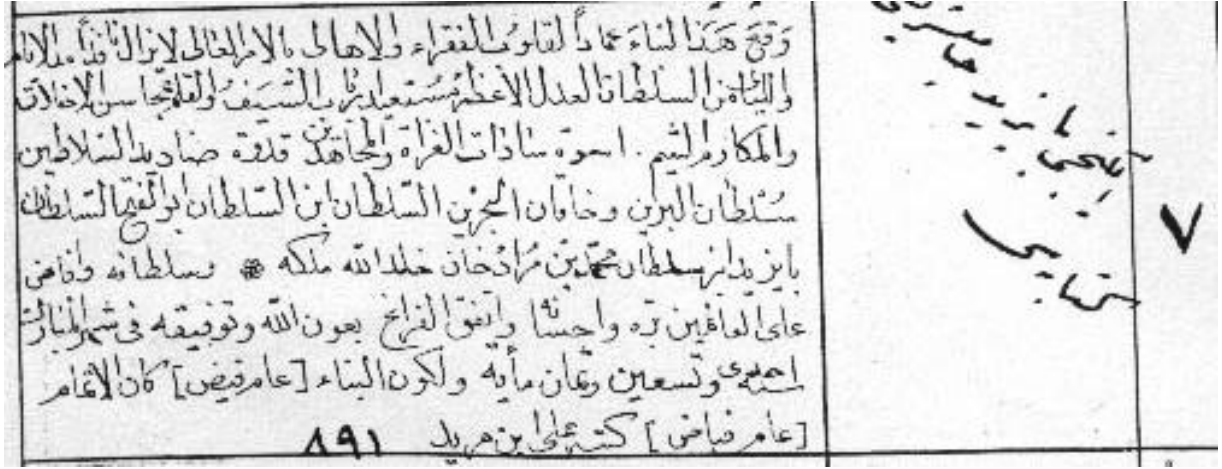 وَقَعَ هَذَا البناءَ عماداً لقلوب الفقراء والاهالى بالامر العالى لا زال نافذاً
السلطان العدل الاعظم مستعبد ارباب السَّيفُ والقلم بمحاسن الاخلاق
والمكارم الشيم . اسوة سادات الغزاة والمجاهدين قدوة صناديد السلاطين
سُلطان البرين و خاقان البحرين السلطان ابن السلطان ابو الفتح السلطان
بايزيد بن سلطان محمّد بن مُراد خان خلد الله ملكه ❋ وسلطانه وافاض
على العالمين بره واحسانه واتفق الفراغ بعون الله وتوفيقه فى شهر المبارك
احدى وتسعين وثمان مأية ولكون البناء [عام فيض] كان الاتمام
[عام فياض] كتبه على ابن مريد ٨٩١
بايزيد
كتابه سى
٧